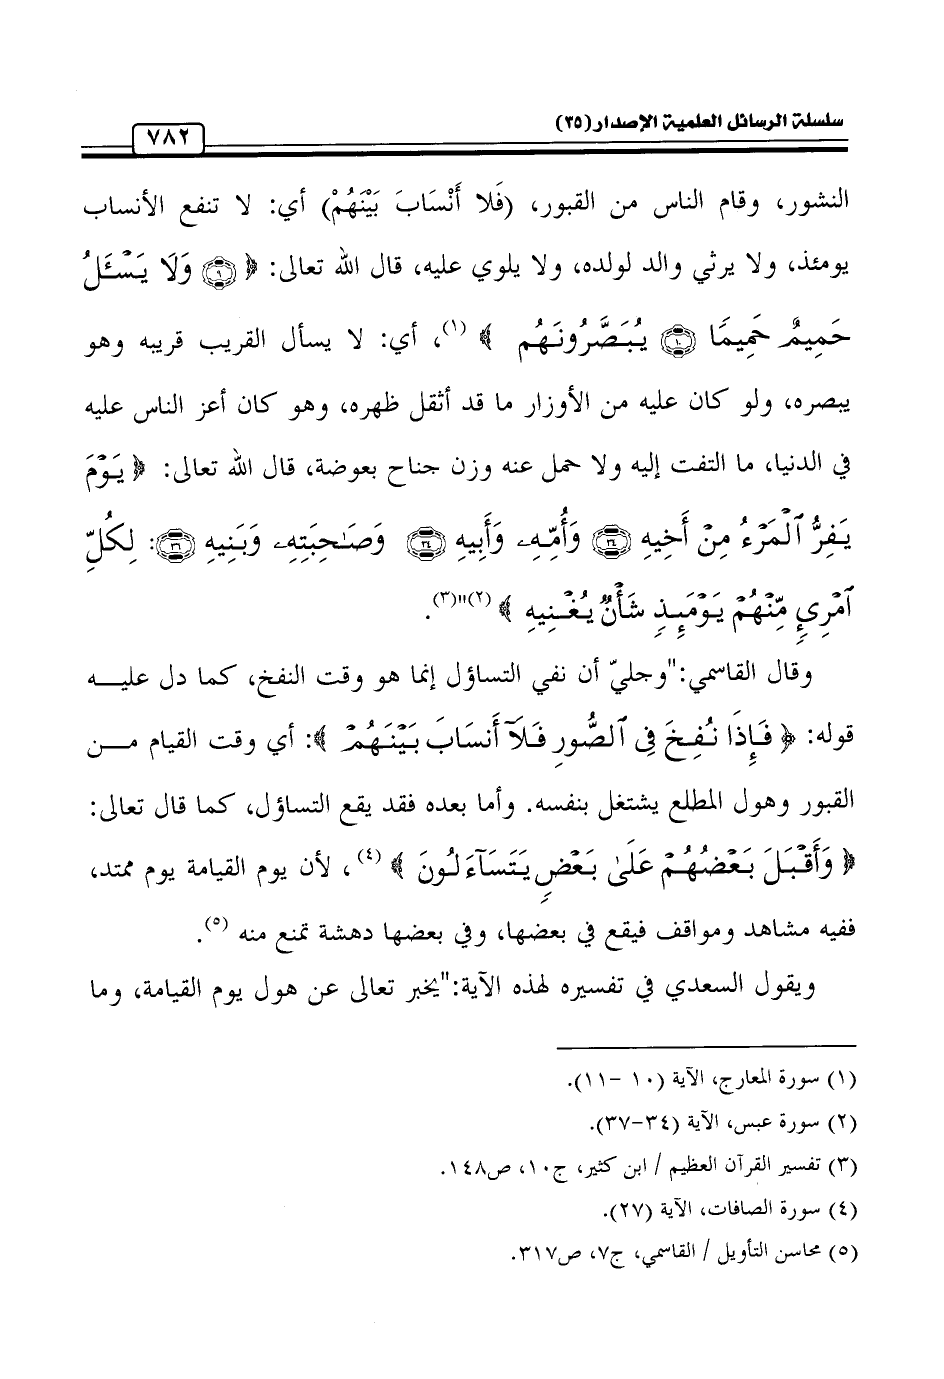 سلسلة الرسائل العلمية الإصدار(٢٥)
٧٨٢
النشور، وقام الناس من القبور، (فَلا أَنْسَابَ بَيْنَهُمْ) أي: لا تنفع الأنساب
يومئذ، ولا يرثي والد لولده، ولا يلوي عليه، قال الله تعالى: ﴿ ۝٩ وَلَا يَسْـَٔلُ
حَمِيمٌ حَمِيمًا ۝١٠ يُبَصَّرُونَهُمْ ﴾ (١)، أي: لا يسأل القريب قريبه وهو
يبصره، ولو كان عليه من الأوزار ما قد أثقل ظهره، وهو كان أعز الناس عليه
في الدنيا، ما التفت إليه ولا حمل عنه وزن جناح بعوضة، قال الله تعالى: ﴿ يَوْمَ
يَفِرُّ ٱلْمَرْءُ مِنْ أَخِيهِ ۝٣٤ وَأُمِّهِۦ وَأَبِيهِ ۝٣٤ وَصَٰحِبَتِهِۦ وَبَنِيهِ ۝٣٦: لِكُلِّ
ٱمْرِئٍ مِّنْهُمْ يَوْمَئِذٍ شَأْنٌ يُغْنِيهِ ﴾ (٢)"(٣).
وقال القاسمي:"وجليّ أن نفي التساؤل إنما هو وقت النفخ، كما دل عليــه
قوله: ﴿ فَإِذَا نُفِخَ فِى ٱلصُّورِ فَلَآ أَنسَابَ بَيْنَهُمْ ﴾: أي وقت القيام مــن
القبور وهول المطلع يشتغل بنفسه. وأما بعده فقد يقع التساؤل، كما قال تعالى:
﴿ وَأَقْبَلَ بَعْضُهُمْ عَلَىٰ بَعْضٍ يَتَسَآءَلُونَ ﴾ (٤)، لأن يوم القيامة يوم ممتد،
ففيه مشاهد ومواقف فيقع في بعضها، وفي بعضها دهشة تمنع منه (٥).
ويقول السعدي في تفسيره لهذه الآية:"يخبر تعالى عن هول يوم القيامة، وما
(١) سورة المعارج، الآية (١٠ -١١).
(٢) سورة عبس، الآية (٣٤-٣٧).
(٣) تفسير القرآن العظيم / ابن كثير، ج١٠، ص١٤٨.
(٤) سورة الصافات، الآية (٢٧).
(٥) محاسن التأويل / القاسمي، ج٧، ص٣١٧.